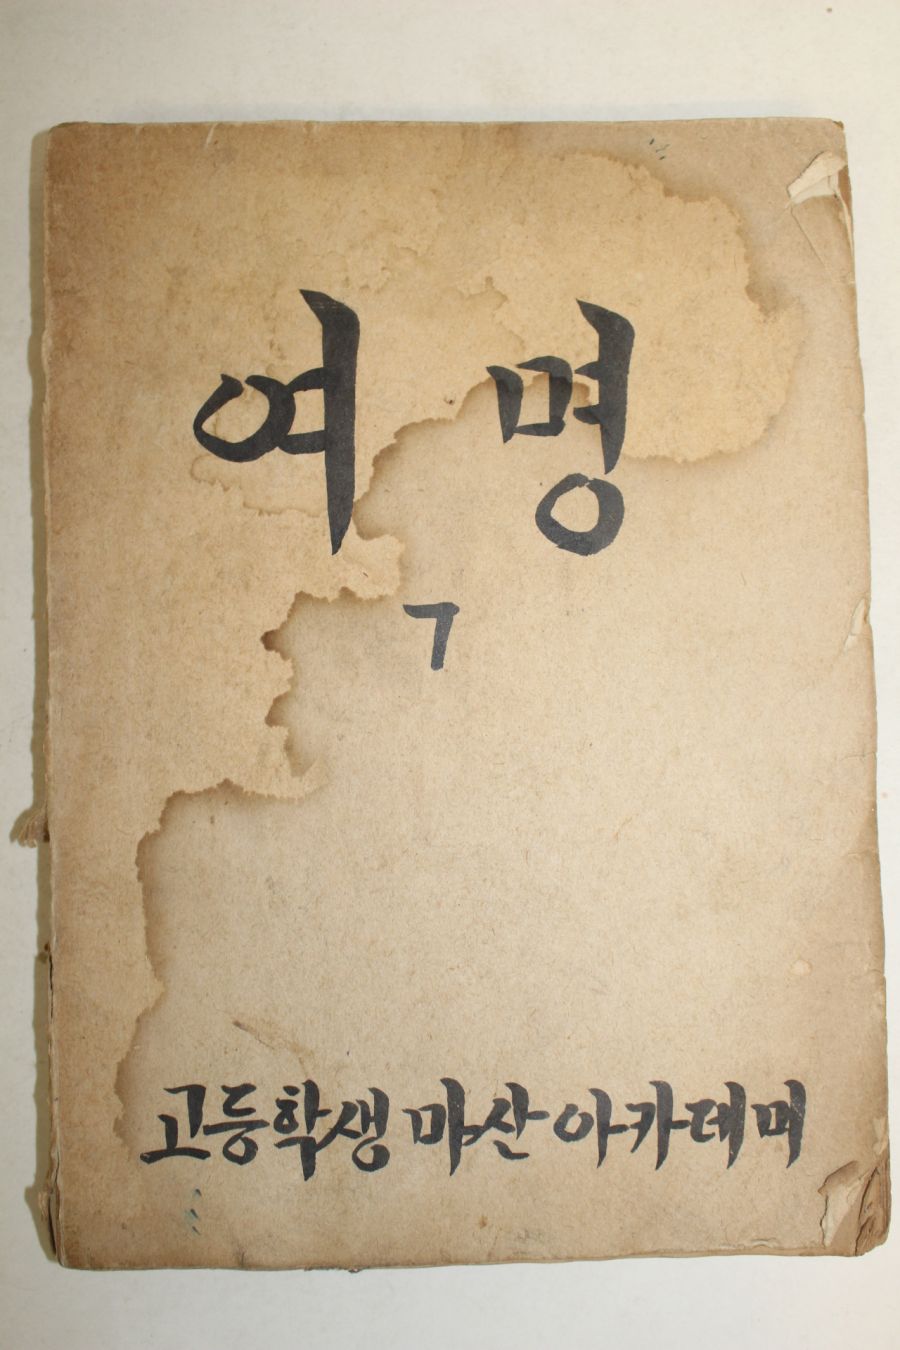 여명
7
고등학생 마산 아카데미